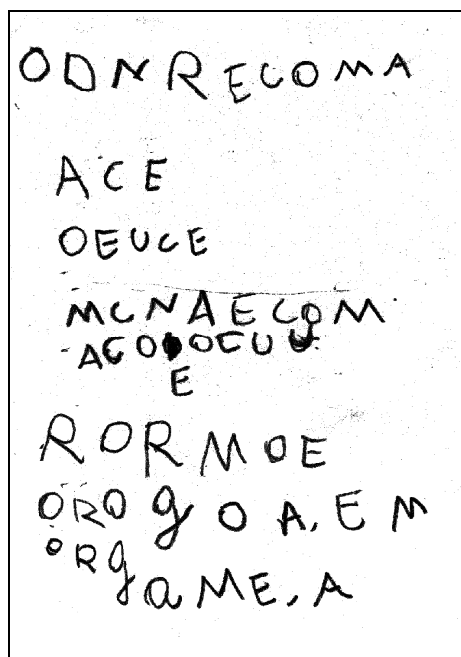 ODNRECOMA
ACE
OEUCE
MCNAECOM
ACO OEUU
E
RORMOE
OROgOA.EM
ORgaME.A